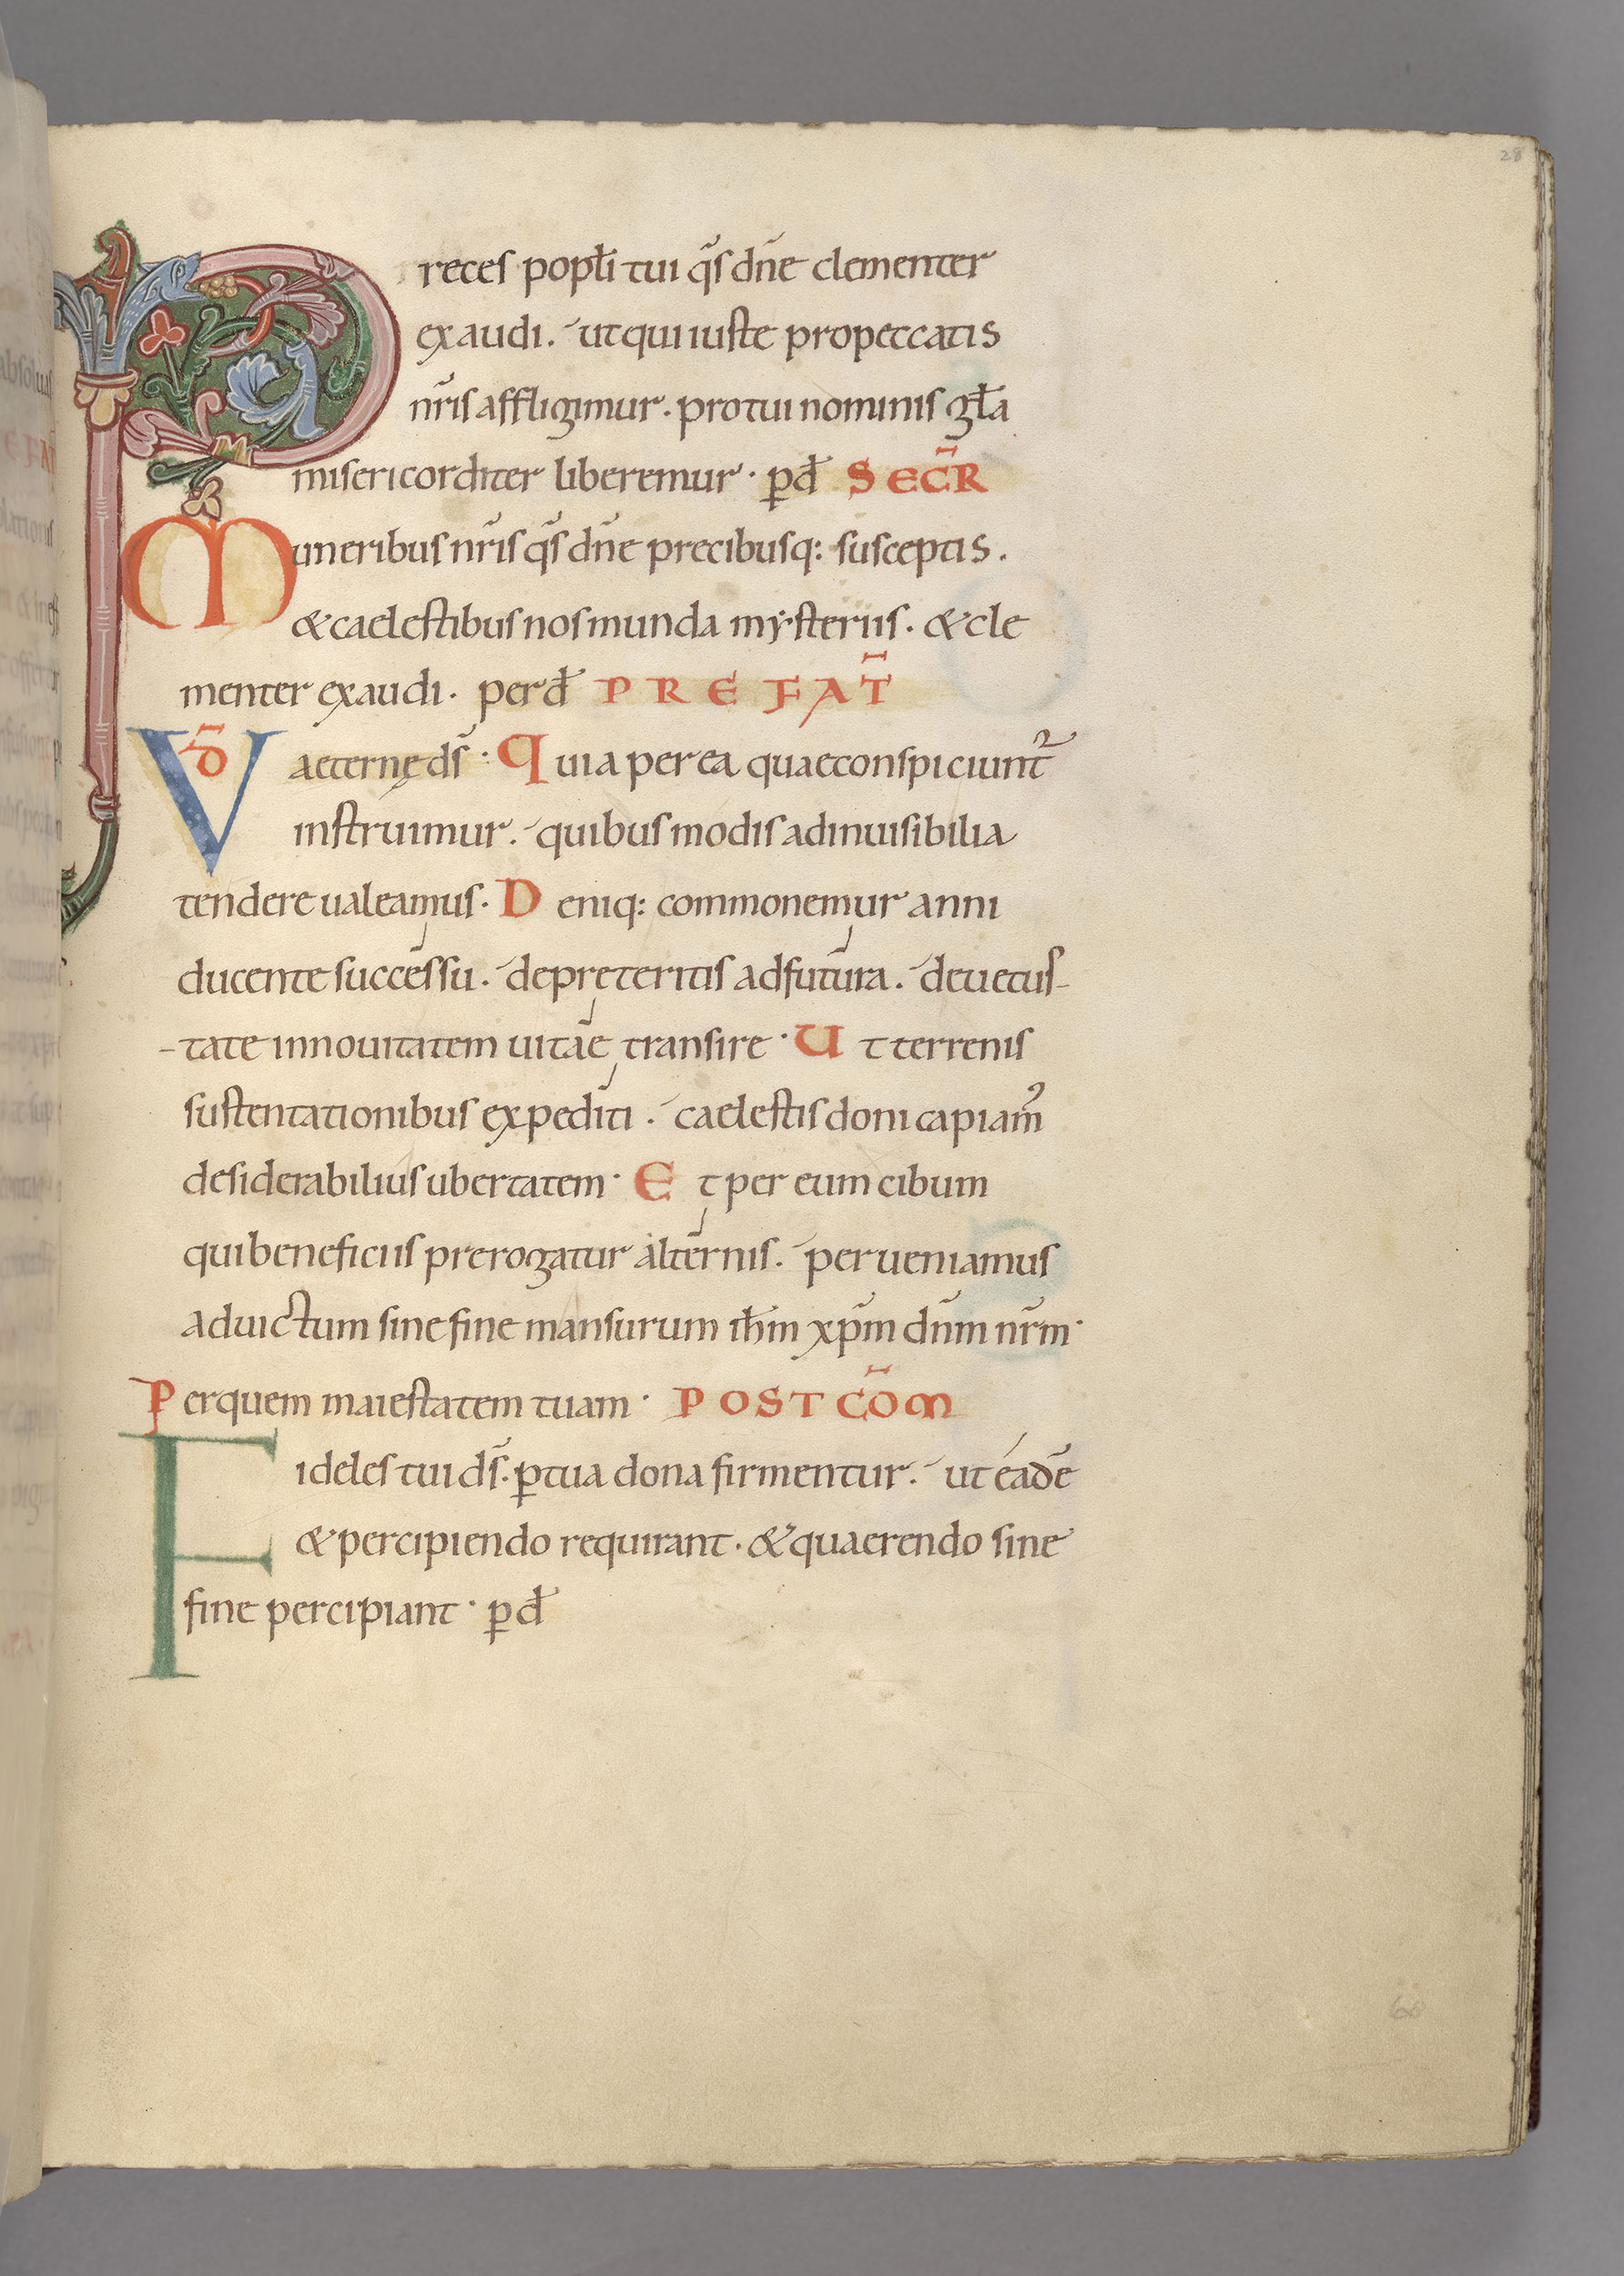 28
Preces popl̄i tui q̄s dn̄e clementer
exaudi. ut qui iuste pro peccatis
nr̄is affligimur. pro tui nominis gl̄a
misericorditer liberemur. p̱ d̄ SECR̄
Muneribus nr̄is q̄s dn̄e precibusq: susceptis.
& caelestibus nos munda mysteriis. & cle
menter exaudi. per d̄ PREFAT̄
VD̄ aeternę ds̄. Quia per ea quae conspiciunt᷑
instruimur. quibus modis ad inuisibilia
tendere ualeamus. Deniq: commonemur anni
ducente successu. de pręteritis ad futura. de uetus-
-tate in nouitatem uitae transire. Ut terrenis
sustentationibus expediti. caelestis doni capiam᾿
desiderabilius ubertatem. Et per eum cibum
qui beneficiis prerogatur alternis. perueniamus
ad uictum sine fine mansurum ih̄m xp̄m dn̄m nr̄m.
Per quem maiestatem tuam. POST CŌM
Fideles tui ds̄. p̱ tua dona firmentur. ut eadē
& percipiendo requirant. & quaerendo sine
fine percipiant. p̱ d̄